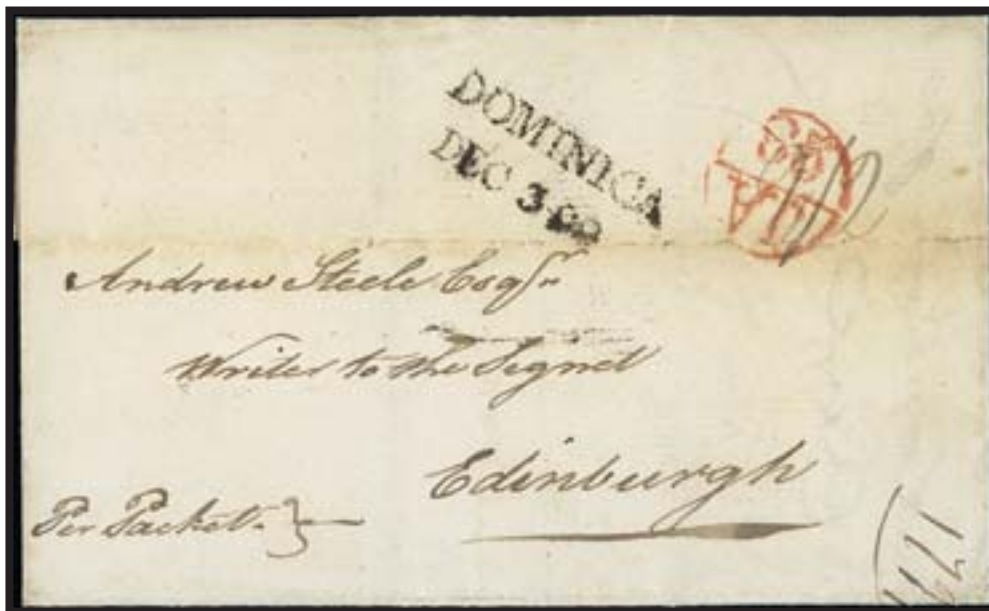 DOMINICA
DEC 3
Andrew Steele Esqr
Writer to the Signet
Edinburgh
Per Packet